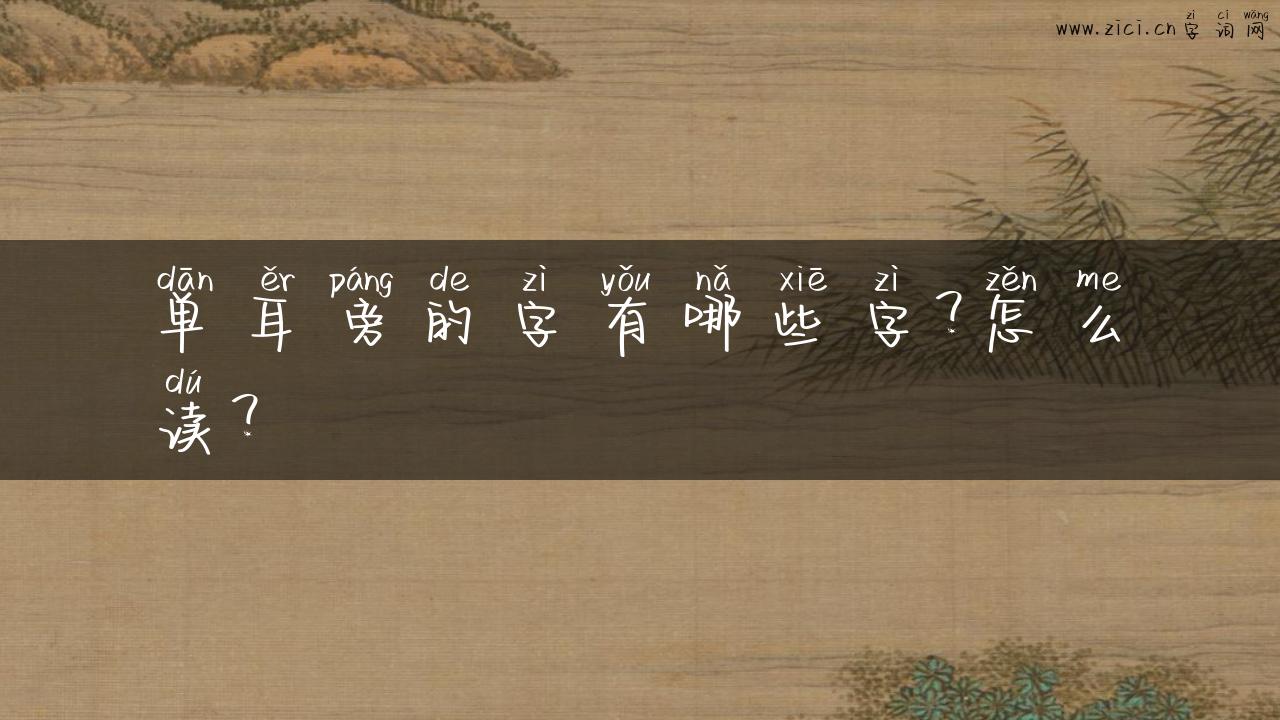 zì cí wǎng
www.zici.cn字词网
dān ěr páng de zì yǒu nǎ xiē zì zěn me
单耳旁的字有哪些字？怎么
dú
读？